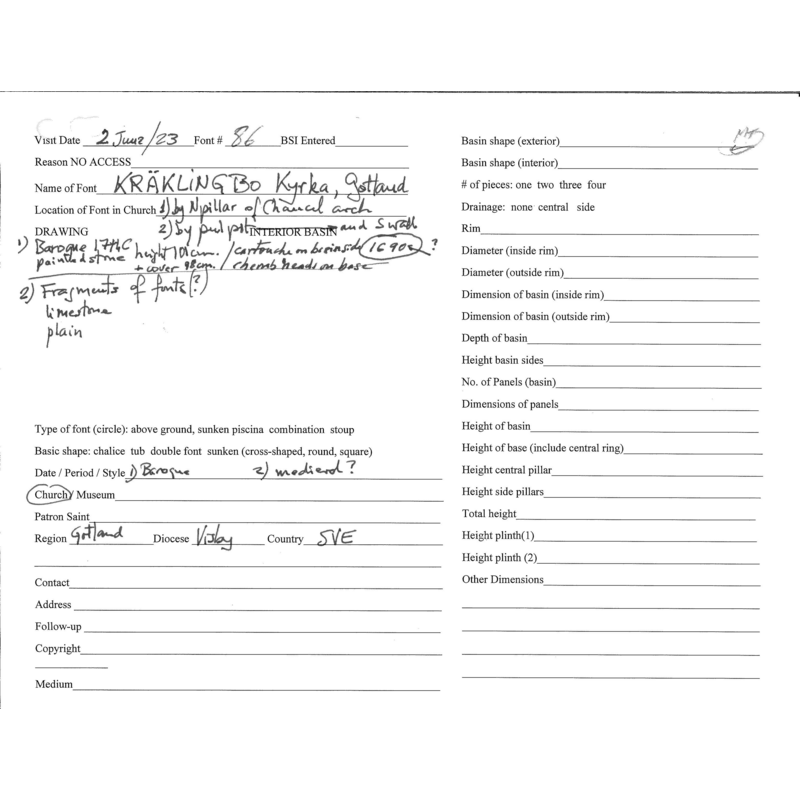 Visit Date 2 June/23 Font # 86 BSI Entered
Reason NO ACCESS
Name of Font KRÄKLINGBO Kyrka, Gotland
Location of Font in Church 1) by N pillar of Chancel arch
DRAWING 2) by pulpit INTERIOR BASIN and S wall
1) Baroque 17thC height 101cm. / cartouche on basinside 1690s ?
painted stone + cover 98cm. / cherub heads on base
2) Fragments of fonts(?)
limestone
plain
Type of font (circle): above ground, sunken piscina combination stoup
Basic shape: chalice tub double font sunken (cross-shaped, round, square)
Date / Period / Style 1) Baroque 2) medieval ?
Church/ Museum
Patron Saint
Region Gotland Diocese Visby Country SVE
Contact
Address
Follow-up
Copyright
Medium
Basin shape (exterior)
Basin shape (interior)
# of pieces: one two three four
Drainage: none central side
Rim
Diameter (inside rim)
Diameter (outside rim)
Dimension of basin (inside rim)
Dimension of basin (outside rim)
Depth of basin
Height basin sides
No. of Panels (basin)
Dimensions of panels
Height of basin
Height of base (include central ring)
Height central pillar
Height side pillars
Total height
Height plinth(1)
Height plinth (2)
Other Dimensions